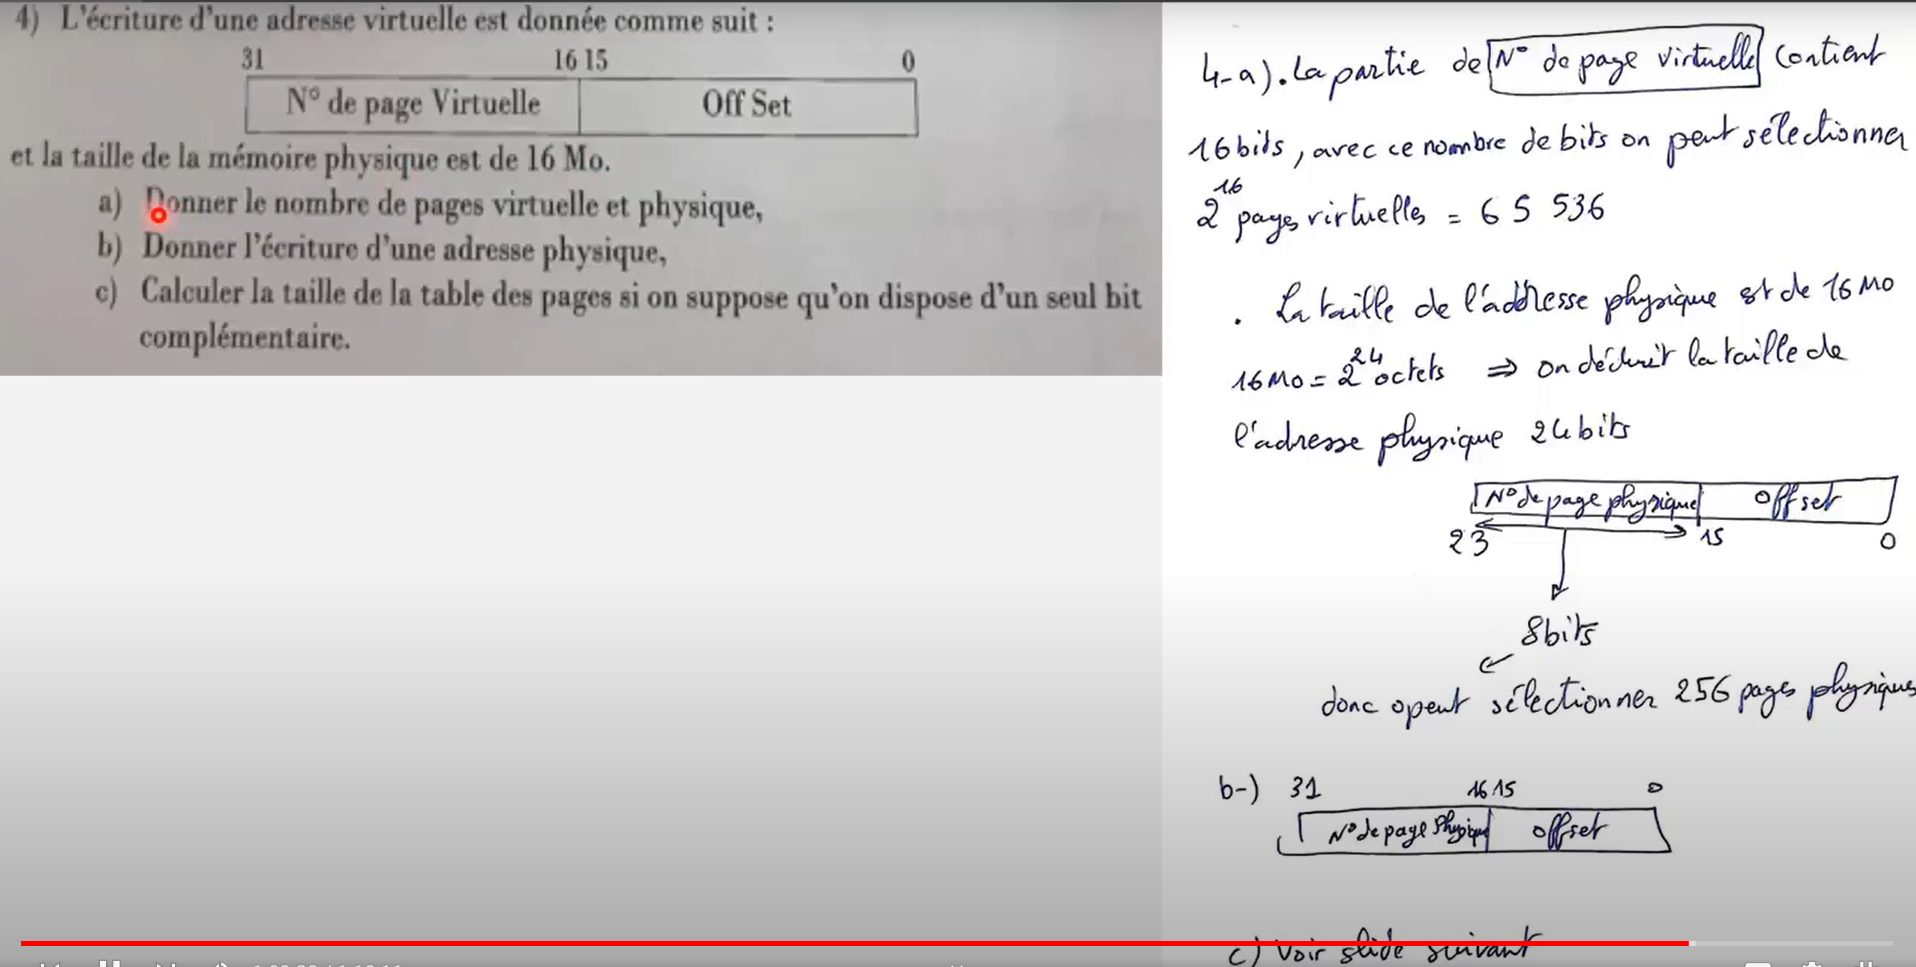 4) L'écriture d'une adresse virtuelle est donnée comme suit :
31 16 15 0
N° de page Virtuelle Off Set
et la taille de la mémoire physique est de 16 Mo.
a) Donner le nombre de pages virtuelle et physique,
b) Donner l'écriture d'une adresse physique,
c) Calculer la taille de la table des pages si on suppose qu'on dispose d'un seul bit
complémentaire.
4-a). La partie de N° de page virtuelle contient
16 bits, avec ce nombre de bits on peut sélectionner
2^16 pages virtuelles = 65 536
. La taille de l'addresse physique est de 16 Mo
16 Mo = 2^24 octets ⇒ on déduit la taille de
l'adresse physique 24 bits
N° de page physique Offset
23 15 0
8 bits
donc opeut sélectionner 256 pages physiques
b-) 31 16 15 0
N° de page Physique offset
c) Voir slide suivant